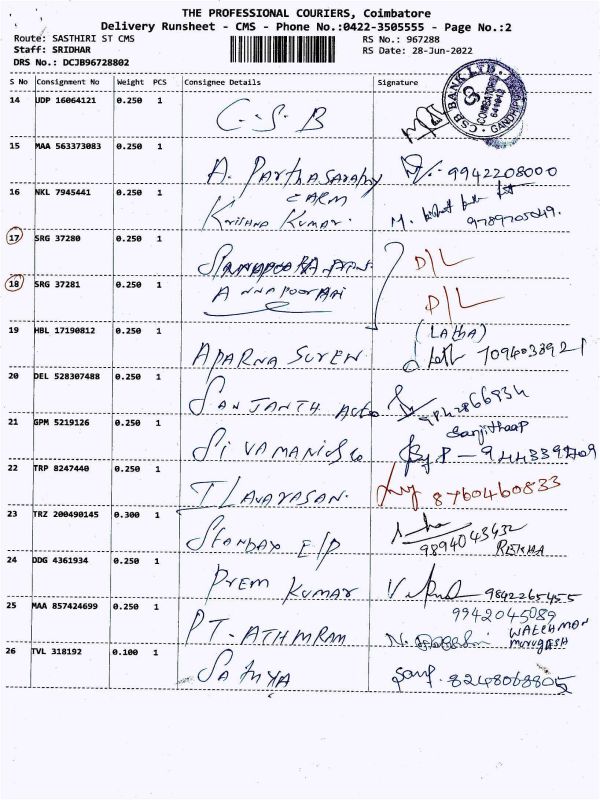 THE PROFESSIONAL COURIERS, Coimbatore
Delivery Runsheet - CMS - Phone No.:0422-3505555 - Page No.:2
Route: SASTHIRI ST CMS RS No.: 967288
Staff: SRIDHAR RS Date: 28-Jun-2022
DRS No.: DCJB96728802
S No Consignment No Weight PCS Consignee Details Signature
14 UDP 16064121 0.250 1 C.S.B
CSB BANK LTD. COIMBATORE GANDHIPURAM
15 MAA 563373083 0.250 1 A. Parthasarathy 9942208000
16 NKL 7945441 0.250 1 CARM
Krishna Kumar. M.
17 SRG 37280 0.250 1 D/L
18 SRG 37281 0.250 1 Annapoorani D/L
19 HBL 17190812 0.250 1 (Latha)
APARNA SUREN
20 DEL 528307488 0.250 1 SANJANTH
21 GPM 5219126 0.250 1 SIVAMANI
22 TRP 8247440 0.250 1 ILAVARASAN. 8760460833
23 TRZ 200490145 0.300 1 9894043432
REKHA
24 DDG 4361934 0.250 1 Prem Kumar 9842265455
25 MAA 857424699 0.250 1 9942045089
PT. ATHMRAM N. WATCHMAN
26 TVL 318192 0.100 1 Sathya 8248068805